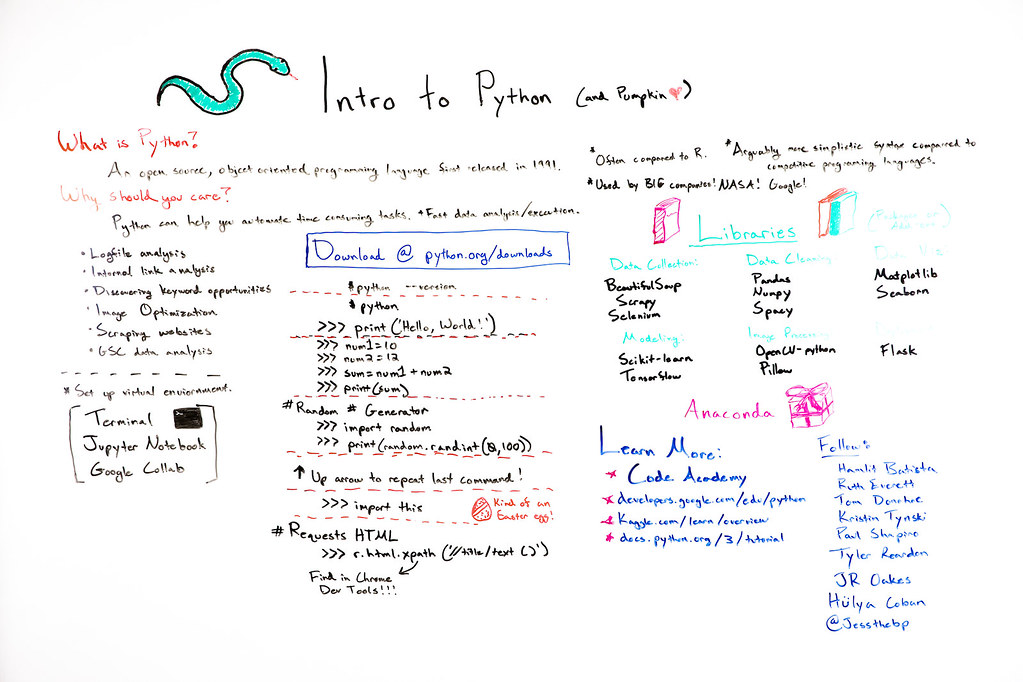 Intro to Python (and Pumpkin)
What is Python?
An open source, object oriented programming language first released in 1991.
Why should you care?
Python can help you automate time consuming tasks. * Fast data analysis/execution.
• Logfile analysis
• Internal link analysis
• Discovering keyword opportunities
• Image Optimization
• Scraping websites
• GSC data analysis
* Set up virtual enviornment.
Terminal
Jupyter Notebook
Google Collab
Download @ python.org/downloads
$ python --version
$ python
>>> print ('Hello, World!')
>>> num1=10
>>> num2=12
>>> sum=num1+num2
>>> print(sum)
# Random # Generator
>>> import random
>>> print(random.randint(0,100))
↑ Up arrow to repeat last command!
>>> import this
Kind of an
Easter egg!
# Requests HTML
>>> r.html.xpath ('//title/text ()')
Find in Chrome
Dev Tools!!!
* Often compared to R.
* Arguably more simplistic syntax compared to
competitive programing languages.
* Used by BIG companies! NASA! Google!
Libraries
Data Collection:
BeautifulSoup
Scrapy
Selenium
Data Cleaning
Pandas
Numpy
Spacy
Matplotlib
Seaborn
Modeling:
Scikit-learn
Tensorflow
Image
OpenCV-python
Pillow
Flask
Anaconda
Learn More:
* Code Academy
* developers.google.com/edu/python
* Kaggle.com/learn/overview
* docs.python.org/3/tutorial
Follow:
Hamlet Batista
Ruth Everett
Tom Donahoe
Kristin Tynski
Paul Shapiro
Tyler Reardon
JR Oakes
Hülya Coban
@Jessthebp